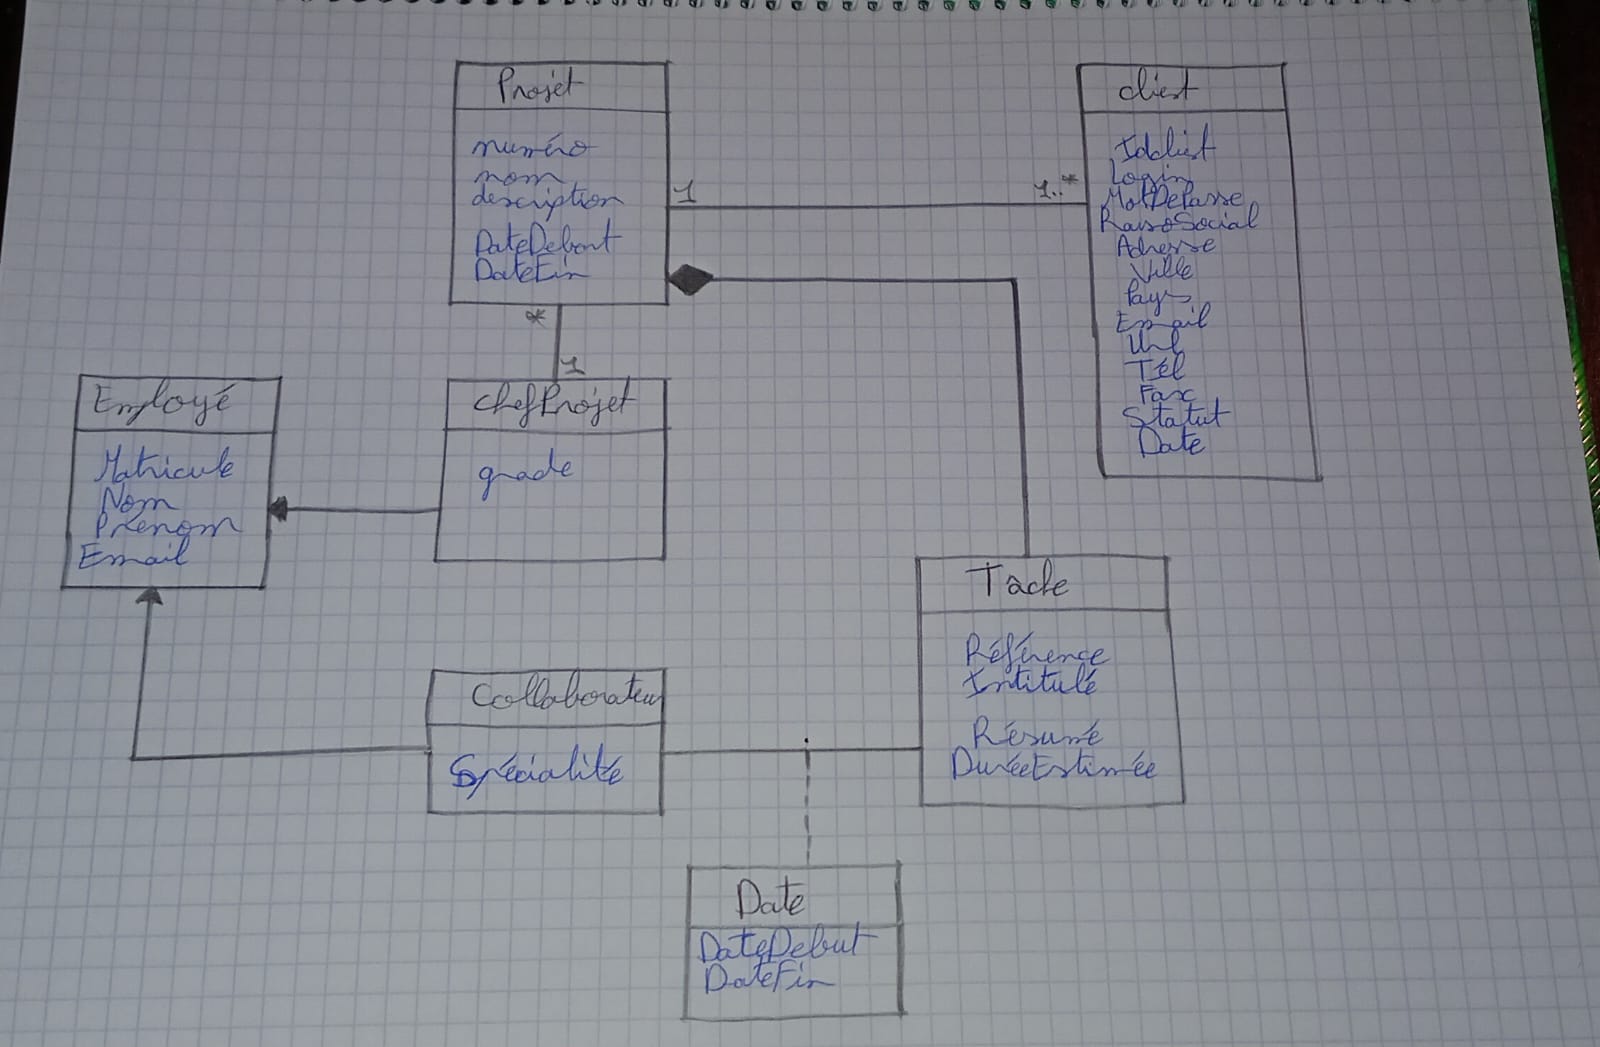 Projet
numéro
nom
description
DateDebut
DateFin
1
1..*
client
Idclient
Login
MotDePasse
RaisoSocial
Adresse
Ville
Pays
Email
Url
Tél
Fax
Statut
Date
*
1
Employé
Matricule
Nom
Prénom
Email
chefProjet
grade
Tache
Référence
Intitulé
Résumé
DuréeEstimée
Collaborateur
Spécialité
Date
DateDebut
DateFin